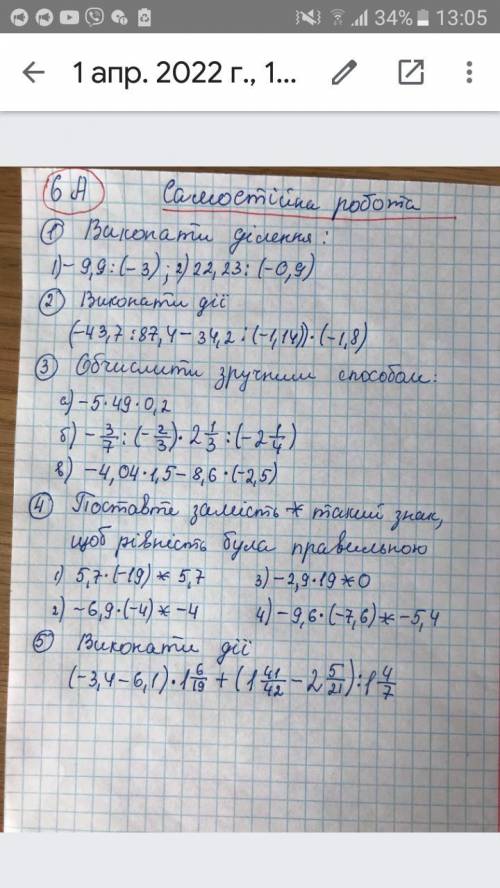 34% 13:05
1 апр. 2022 г., 1...
6 А Самостійна робота
1 Виконати ділення:
1) - 9,9 : (-3) ; 2) 22,23 : (-0,9)
2 Виконати дії
(-43,7 : 87,4 - 34,2 : (-1,14)) · (-1,8)
3 Обчислити зручним способом:
а) -5 · 49 · 0,2
б) - 3/7 : (- 2/3) · 2 1/3 : (-2 1/4)
в) -4,04 · 1,5 - 8,6 · (-2,5)
4 Поставте замість * такий знак,
щоб рівність була правильною
1) 5,7 · (-19) * 5,7 3) -2,9 · 19 * 0
2) -6,9 · (-4) * -4 4) -9,6 · (-7,6) * -5,4
5 Виконати дії
(-3,4 - 6,1) · 1 6/19 + (1 41/42 - 2 5/21) : 1 4/7